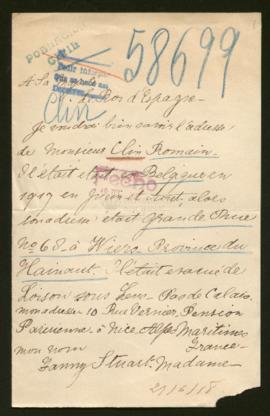 58699
Clin
A Sa
d'Espagne
Je voudrai bien savoir l'adresse
de monsieur Clin Romain.
Il était Belgique en
1917 en Juin et Aout, alors
son adresse etait Grande Rue
No 68. à Wiers Province du
Hainaut. Il était évacué de
Loison sous Lens. Pas de Calais.
mon adresse 10 Rue Vernier. Pension
Parisienne à Nice. Alpes Maritimes
France
mon nom
Fanny Stuart. Madame
21/6/18